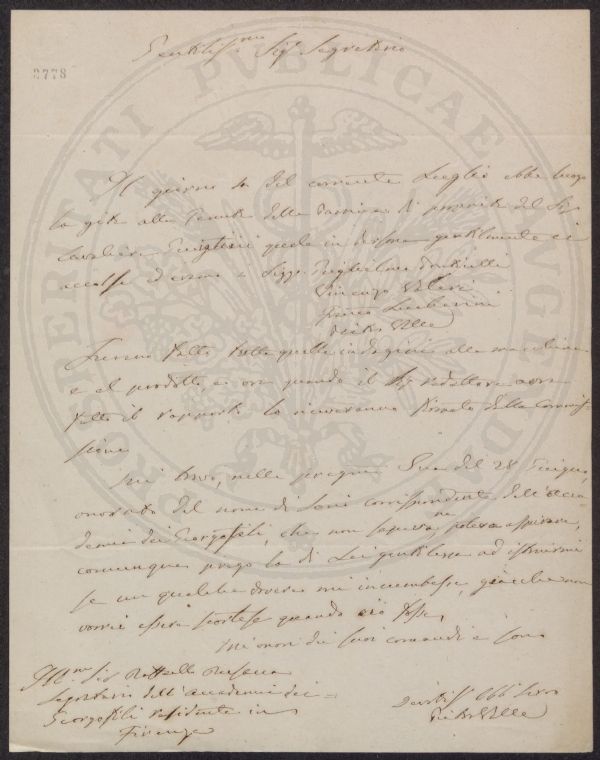 Gentilissmo Sigr Segretario
2778
PROSPERITATI PVBLICAE AVGENDAE
Il giorno 10 del corrente Luglio ebbe luogo
la gita alla Tenuta della di proprietà del Sig
Cavaliere quale in persona gentilmente ci
accolse ed erano i Sigg. Guglielmo
Vincenzo Valeri
Luciberini
Pietro Valle
Furono fatte tutte quelle indagini alla macchina
e al prodotto e ora quando il Sig redattore avrà
fatto il rapporto lo riceveranno firmato dalla Commis-
sione
Mi trovo, nella pregiata Sua del 28 Giugno,
onorato del nome di Socio corrispondente dell'Acca-
demia dei Georgofili, che non sapeva, ne poteva aspirare,
comunque prego la di Lei gentilezza ad istruirmi
se un qualche dovere mi incumbesse, giacchè non
vorrei essere scortese quando ciò fosse,
Mi onori dei suoi comandi e sono
Illmo Sig Raffaello
Segretario dell'Accademia dei =
Georgofili residente in
Firenze
Devotiss Obb Servo
Pietro Valle